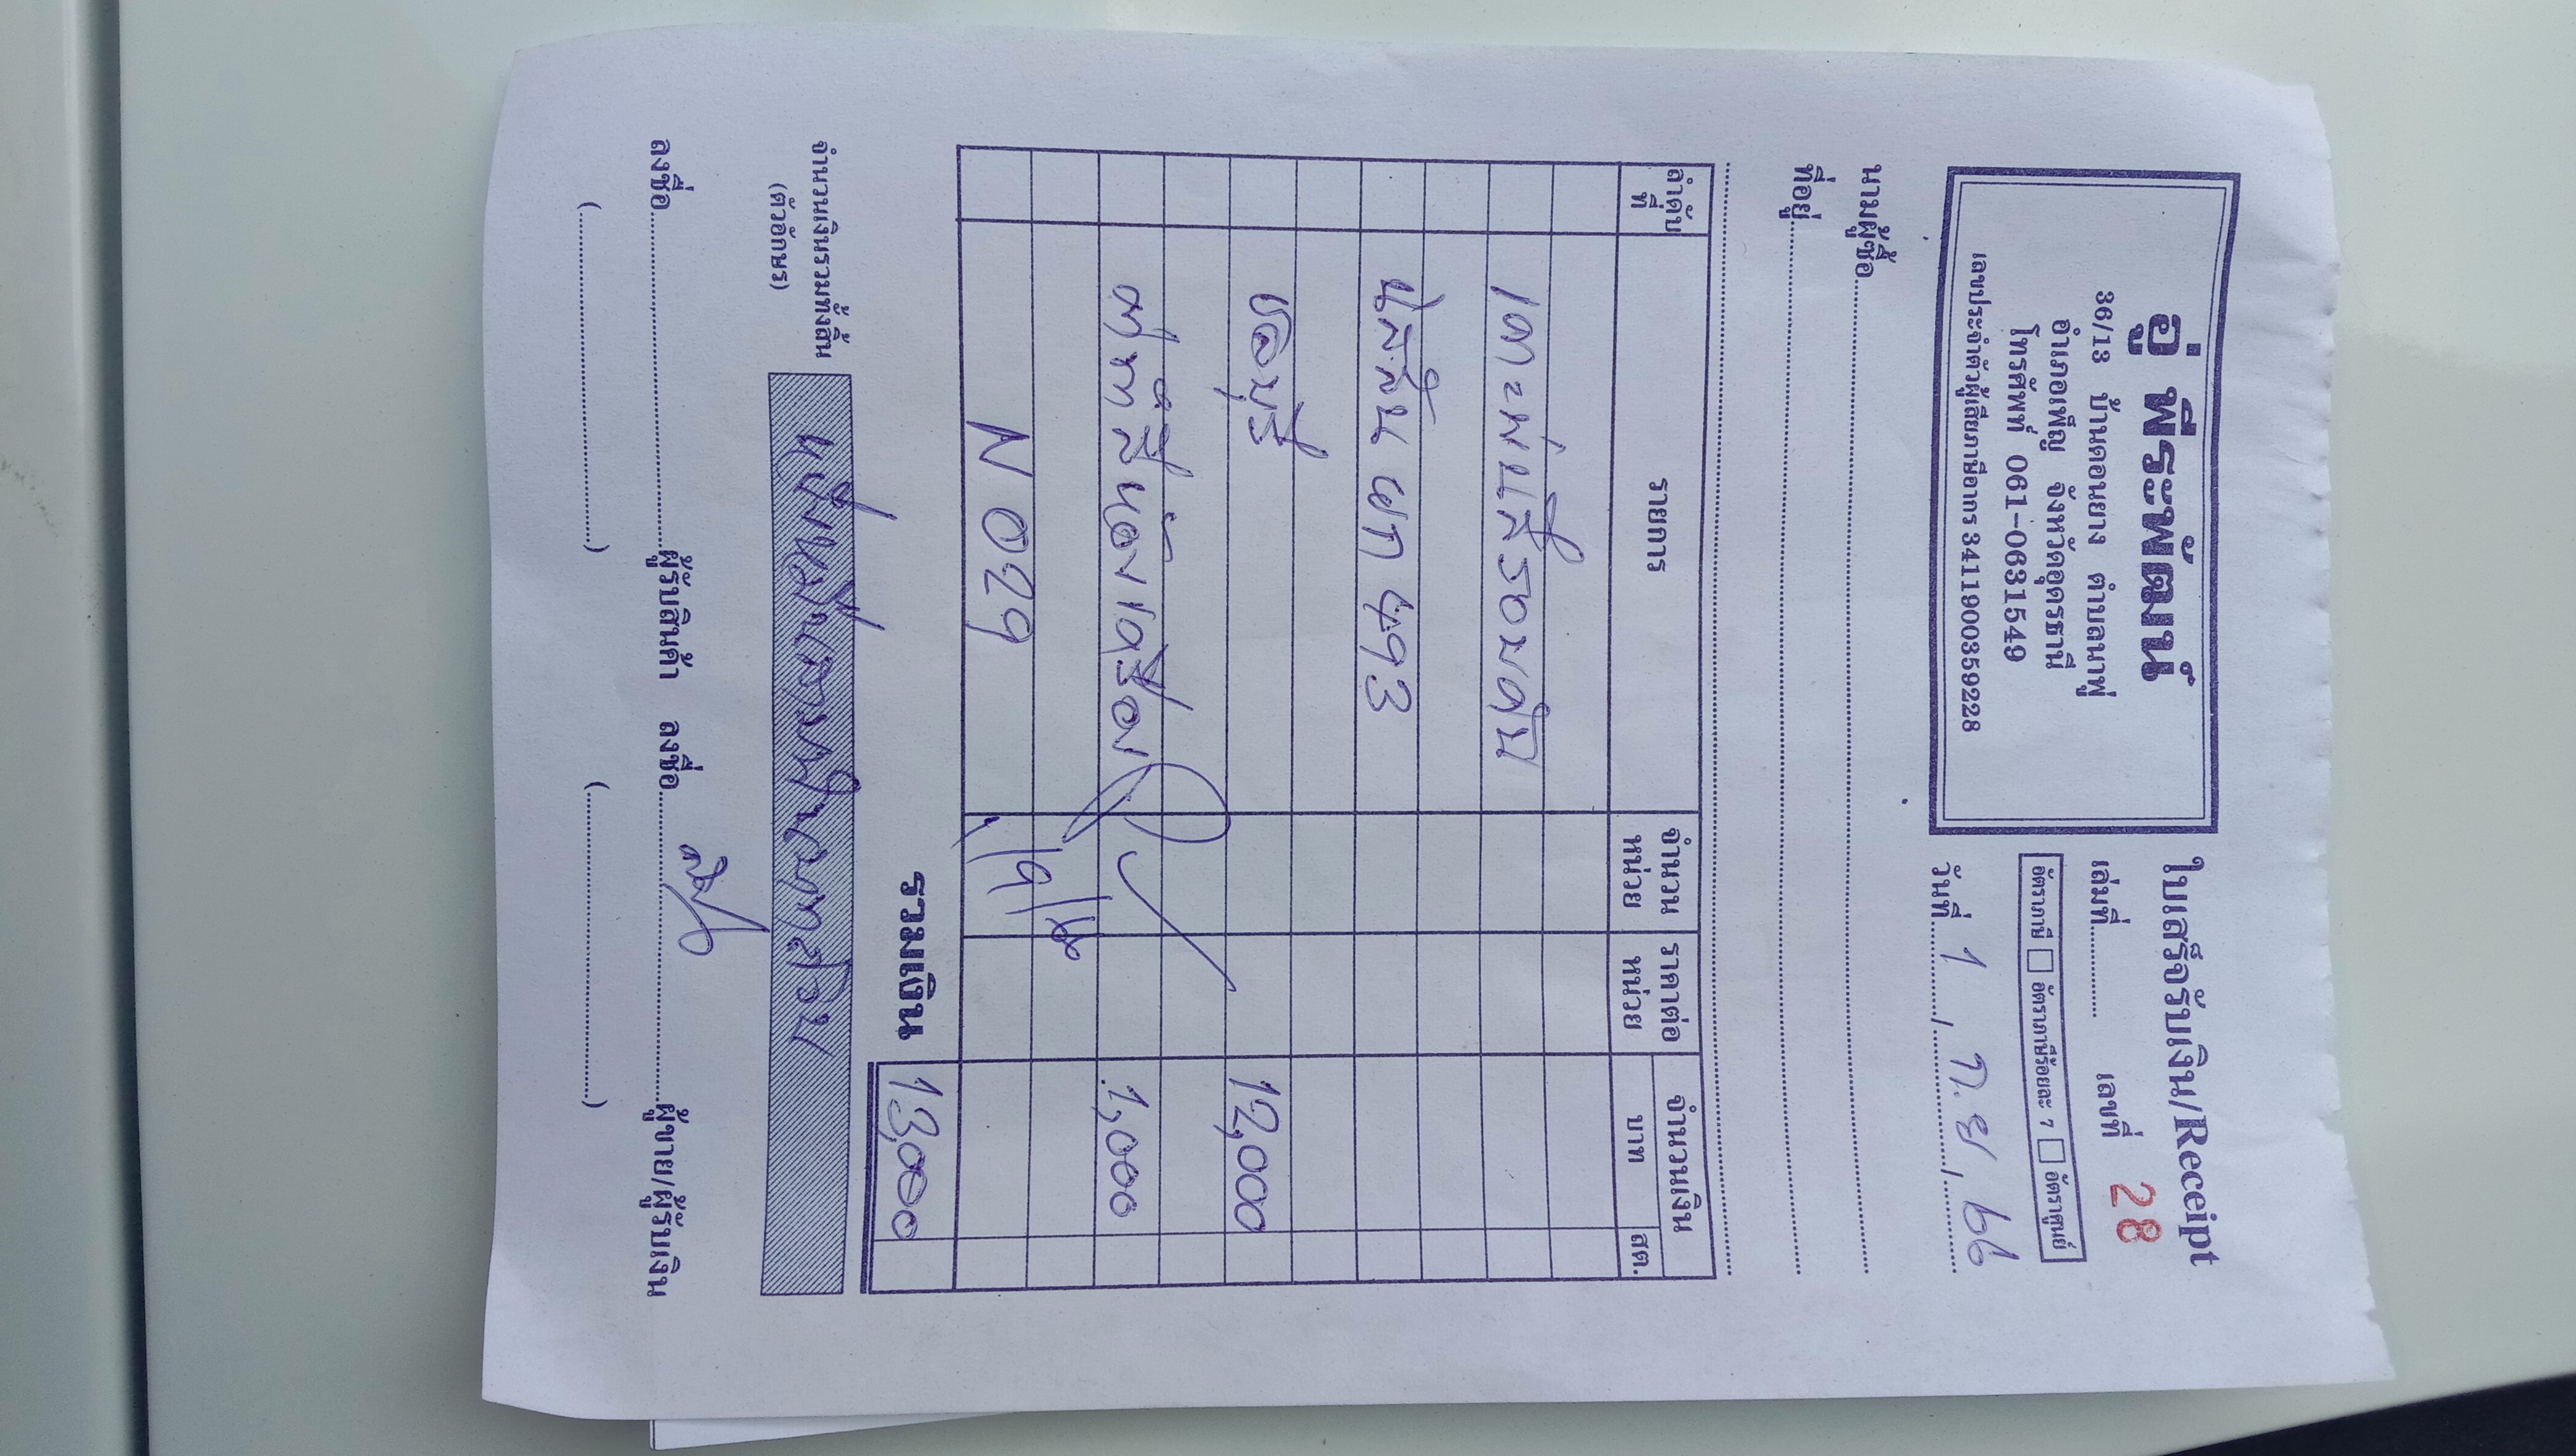 อู่ พีระพัฒน์
36/13 บ้านดอนยาง ตำบลนาพู่
อำเภอเพ็ญ จังหวัดอุดรธานี
โทรศัพท์ 061-0631549
เลขประจำตัวผู้เสียภาษีอากร 3411900359228
ใบเสร็จรับเงิน/Receipt
เล่มที่ เลขที่ 28
อัตราภาษี อัตราภาษีร้อยละ 7 อัตราศูนย์
วันที่ 1 ก.ย. 66
นามผู้ซื้อ
ที่อยู่
ลำดับที่ รายการ จำนวนหน่วย ราคาต่อหน่วย จำนวนเงิน
บาท สต.
เคาะพ่นสีรอบคัน
ผก 493
ชลบุรี 12,000
ค่าทำสีห้องเครื่อง 1,000
N 029
1/9/66
รวมเงิน 13,000
จำนวนเงินรวมทั้งสิ้น
(ตัวอักษร)
หนึ่งหมื่นสามพันบาทถ้วน
ลงชื่อ ผู้รับสินค้า ลงชื่อ ผู้ขาย/ผู้รับเงิน